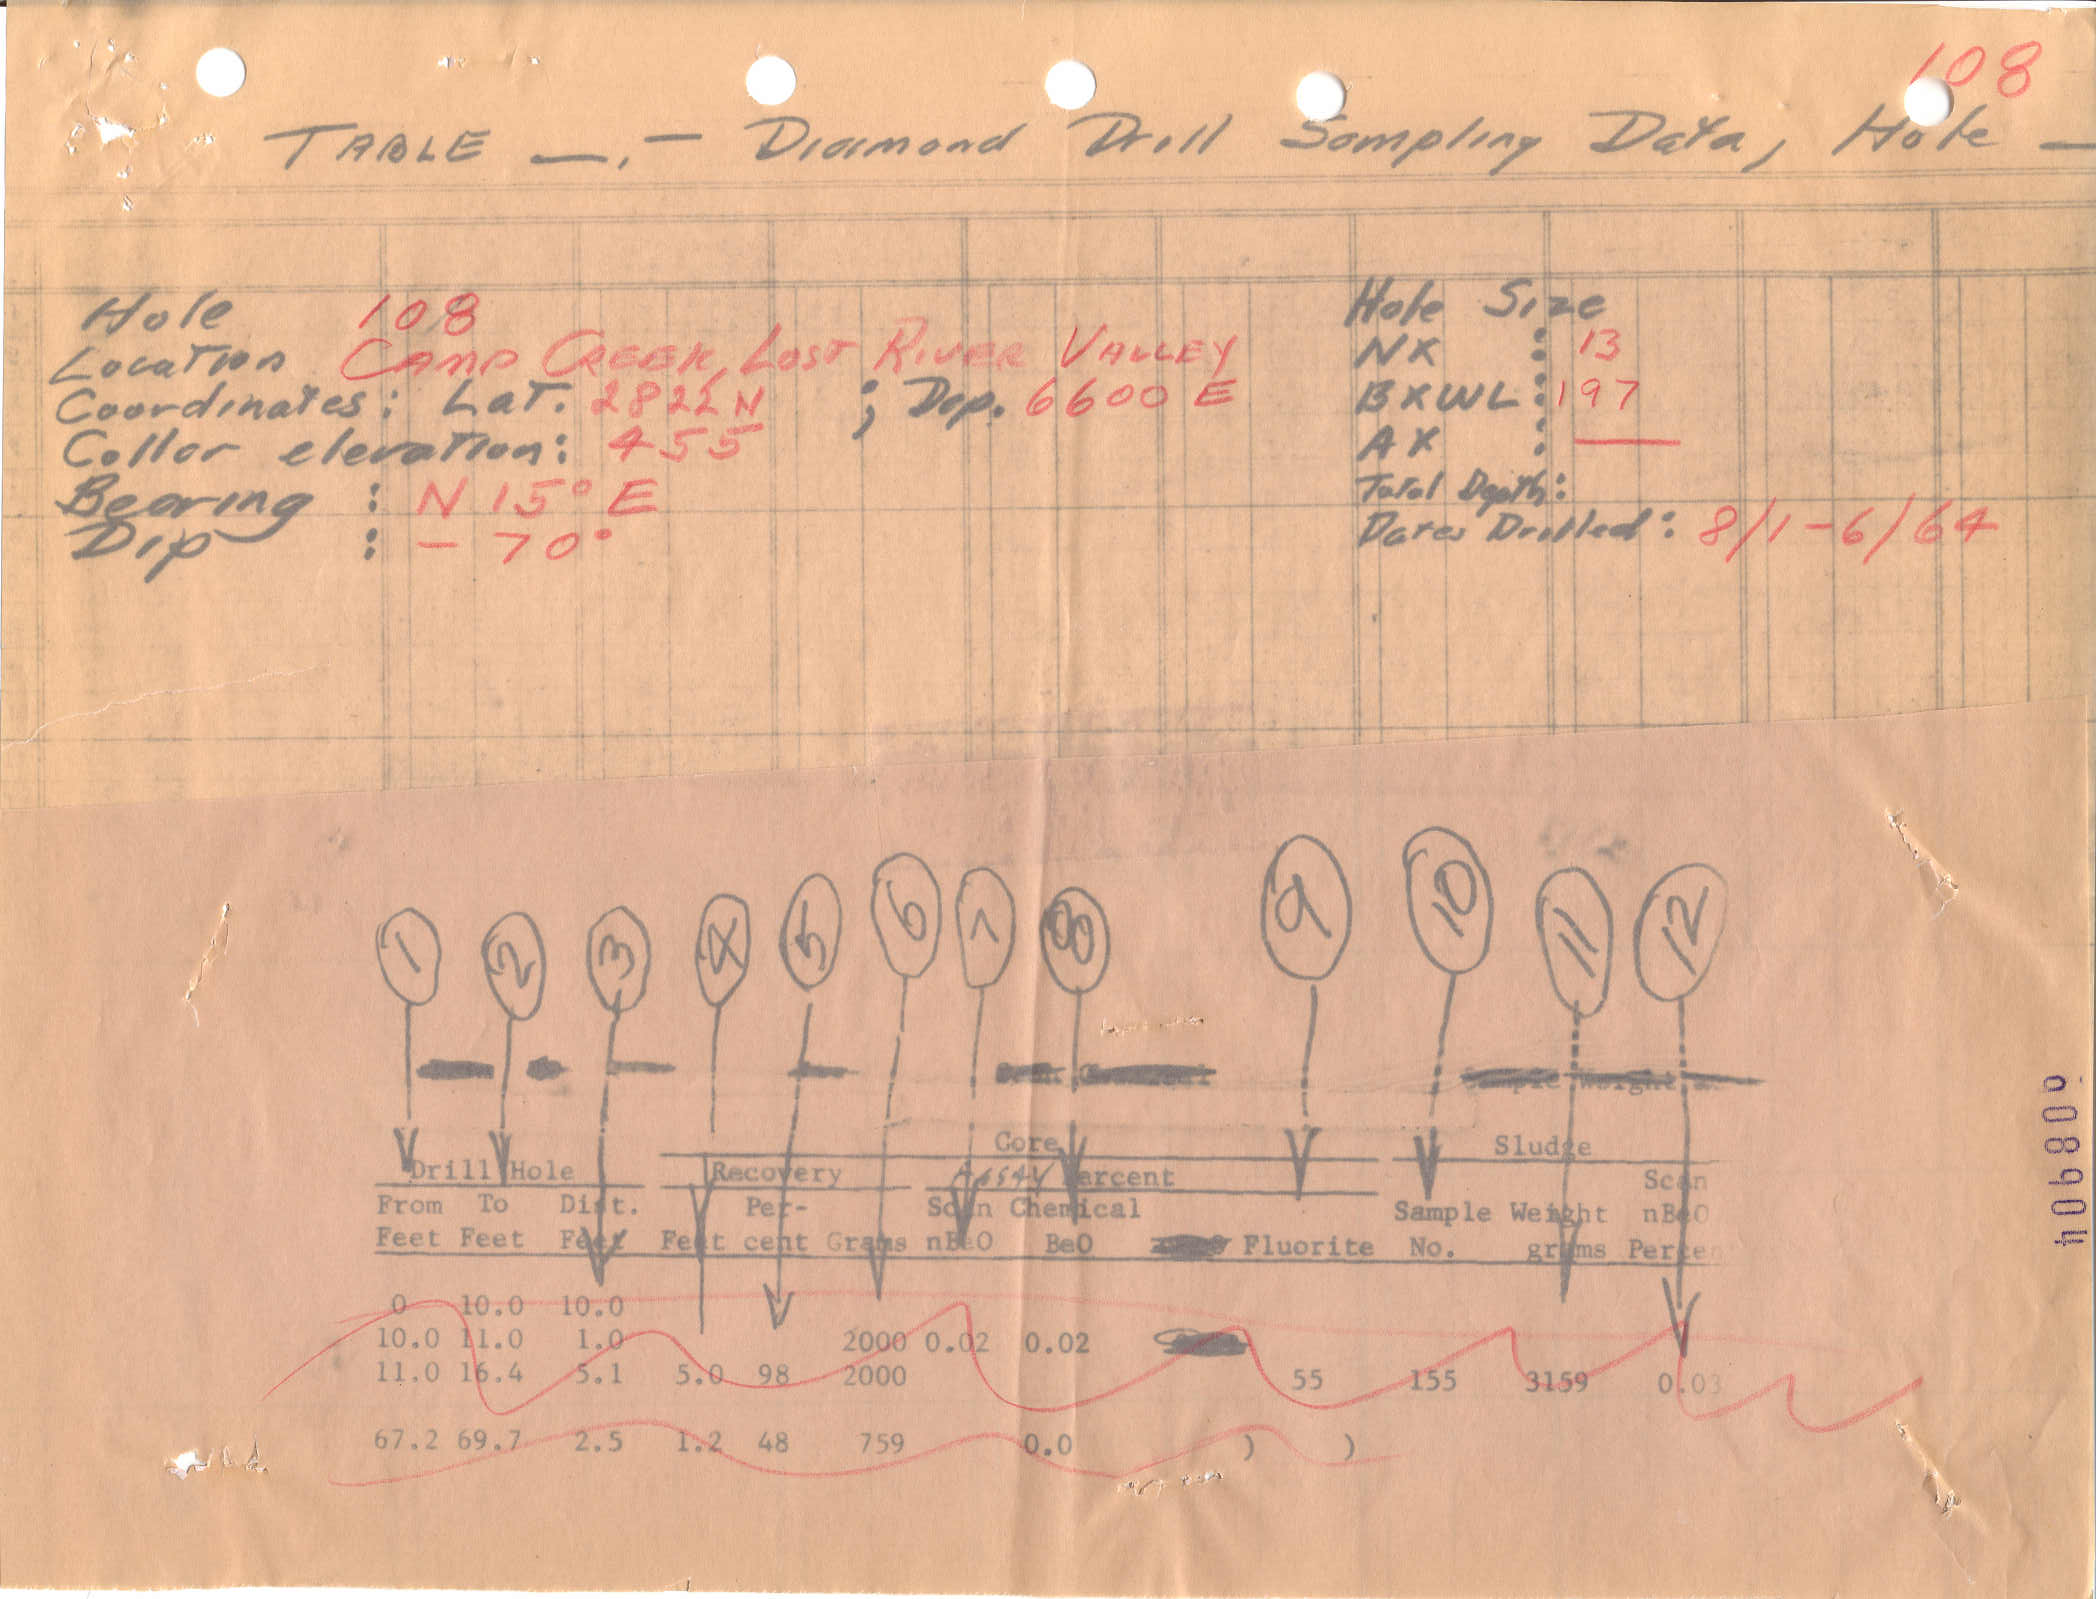 108
TABLE —.— Diamond Drill Sampling Data, Hole —
Hole 108
Location CAMP CREEK, LOST RIVER VALLEY
Coordinates: Lat. N ; Dep. 6600 E
Collar elevation: 455
Bearing : N 15° E
Dip : - 70°
Hole Size
NX : 13
BXWL : 197
AX : —
Total Depth:
Dates Drilled: 8/1-6/64
1 2 3 4 5 6 7 8 9 10 11 12
Core Sludge
Drill Hole Recovery Assay Percent Scan
From To Dist. Per- Scan Chemical Sample Weight nBeO
Feet Feet Feet Feet cent Grams nBeO BeO Fluorite No. grams Percen
0 10.0 10.0
10.0 11.0 1.0 2000 0.02 0.02
11.0 16.4 5.1 5.0 98 2000 55 155 3159 0.03
67.2 69.7 2.5 1.2 48 759 0.0 ) )